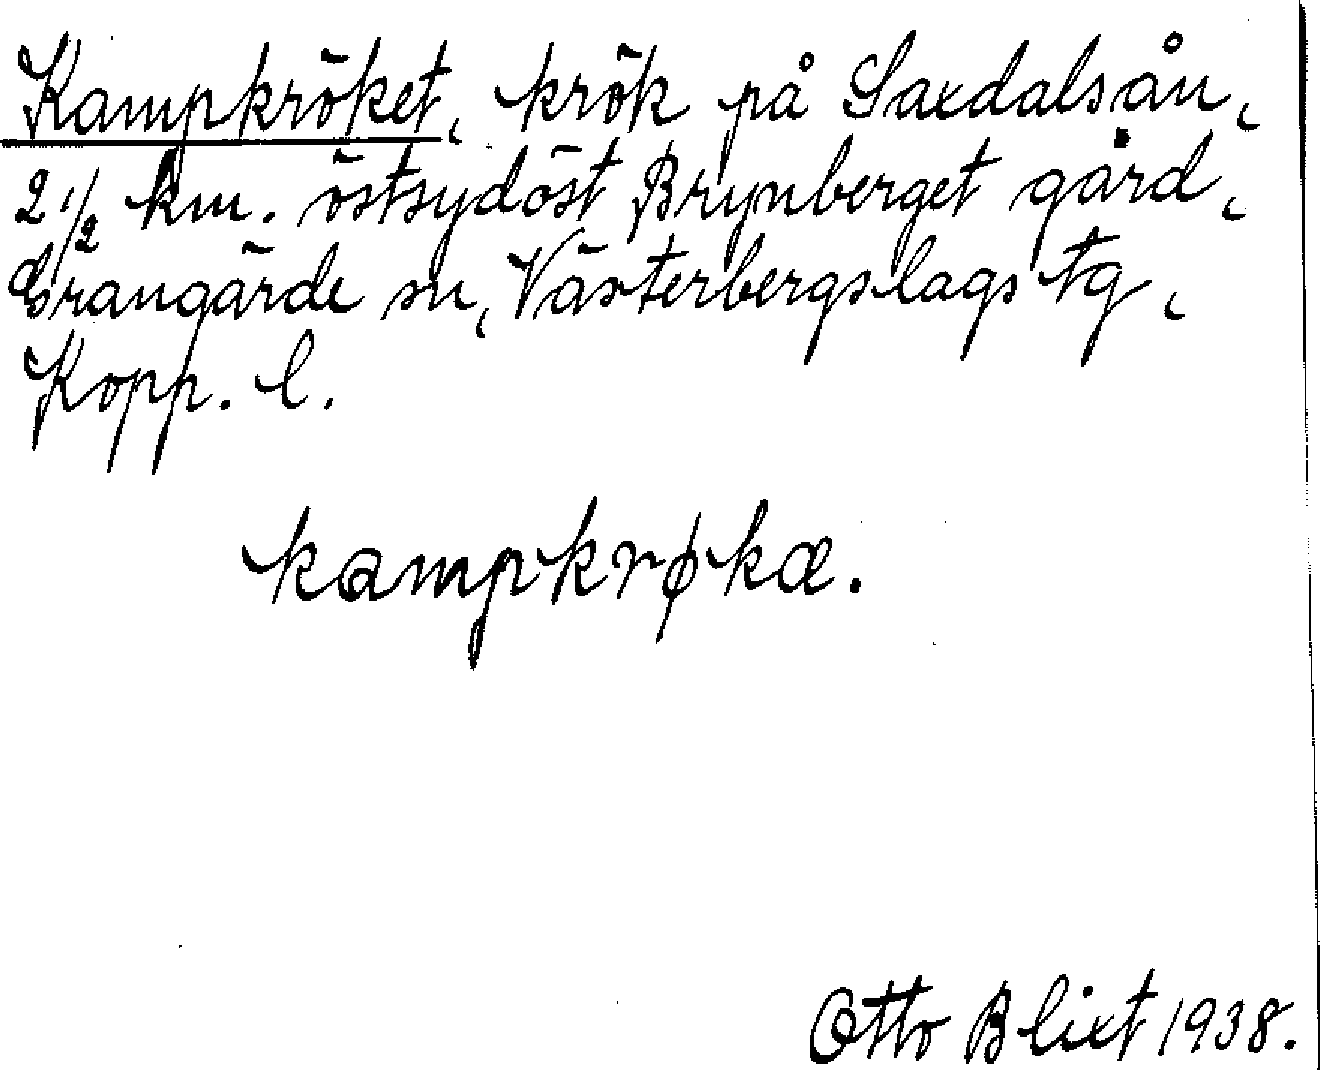 Kampkröket, krök på Saxdalsån,
2 1/2 km. östsydöst Brynberget gård,
Grangärde sn, Västerbergslags tg,
Kopp. l.
kampkrøkæ.
Otto Blixt 1938.